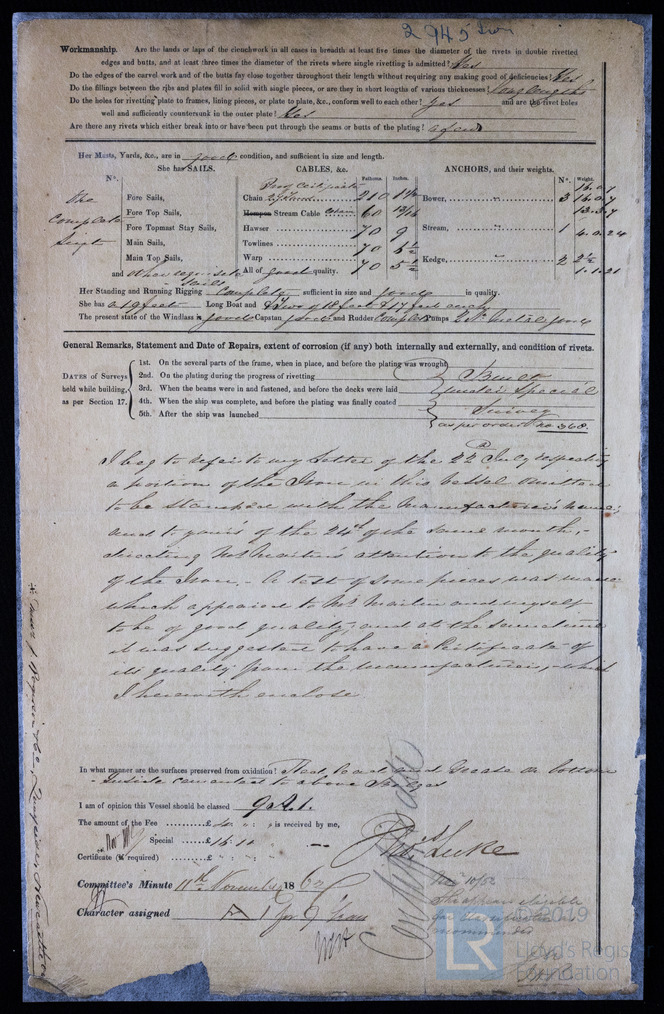 2945 Iron
Workmanship. Are the lands or laps of the clenchwork in all cases in breadth at least five times the diameter of the rivets in double rivetted
edges and butts, and at least three times the diameter of the rivets where single rivetting is admitted? Yes
Do the edges of the carvel work and of the butts fay close together throughout their length without requiring any making good of deficiencies? Yes
Do the fillings between the ribs and plates fill in solid with single pieces, or are they in short lengths of various thicknesses? Long lengths
Do the holes for rivetting plate to frames, lining pieces, or plate to plate, &c., conform well to each other? Yes and are the rivet holes
well and sufficiently countersunk in the outer plate? Yes
Are there any rivets which either break into or have been put through the seams or butts of the plating? a few
Her Masts, Yards, &c., are in good condition, and sufficient in size and length.
She has SAILS. CABLES, &c. ANCHORS, and their weights.
N°. Fathoms. Inches. N°. Weight.
Fore Sails, Chain 210
Fore Top Sails, Hempen Stream Cable Chain 60
Fore Topmast Stay Sails, Hawser 70 9
Main Sails, Towlines 70
Main Top Sails, Warp 70 5 1/2
and other requisite Sails All of good quality.
The Complete
Bower, 3 16.0.7
13.3.7
Stream, 1 4.0.24
Kedge, 2
1.1.21
Her Standing and Running Rigging Complete sufficient in size and good in quality.
She has a 19 feet Long Boat and Two of 18 feet & 17 feet each
The present state of the Windlass is good Capstan good and Rudder Complete Pumps Metal good
General Remarks, Statement and Date of Repairs, extent of corrosion (if any) both internally and externally, and condition of rivets.
DATES of Surveys held while building, as per Section 17.
1st. On the several parts of the frame, when in place, and before the plating was wrought
2nd. On the plating during the progress of rivetting
3rd. When the beams were in and fastened, and before the decks were laid
4th. When the ship was complete, and before the plating was finally coated
5th. After the ship was launched
Built
under Special
Survey
as per order No 368.
I beg to refer to my letter of the 22d July respecting
a portion of the Iron in this vessel omitted
to be stamped with the Manufacturer's name;
and to yours of the 24th of the same month, -
directing Mr Martin's attention to the quality
of the Iron, - A test of some pieces was made
which appeared to Mr Martin and myself
to be of good quality, and at the same time
it was suggested to have a Certificate of
its quality from the manufacturers, - which
I herewith enclose
In what manner are the surfaces preserved from oxidation? Red Lead and Grease on bottom
Inside cemented to above
I am of opinion this Vessel should be classed 9 A 1.
The amount of the Fee £ is received by me,
Special £16.10
Certificate (if required) £
Luke
Committee's Minute 11th November 1862
Character assigned A 1 for 9 Years
2019
LR
Lloyd's Register
Foundation